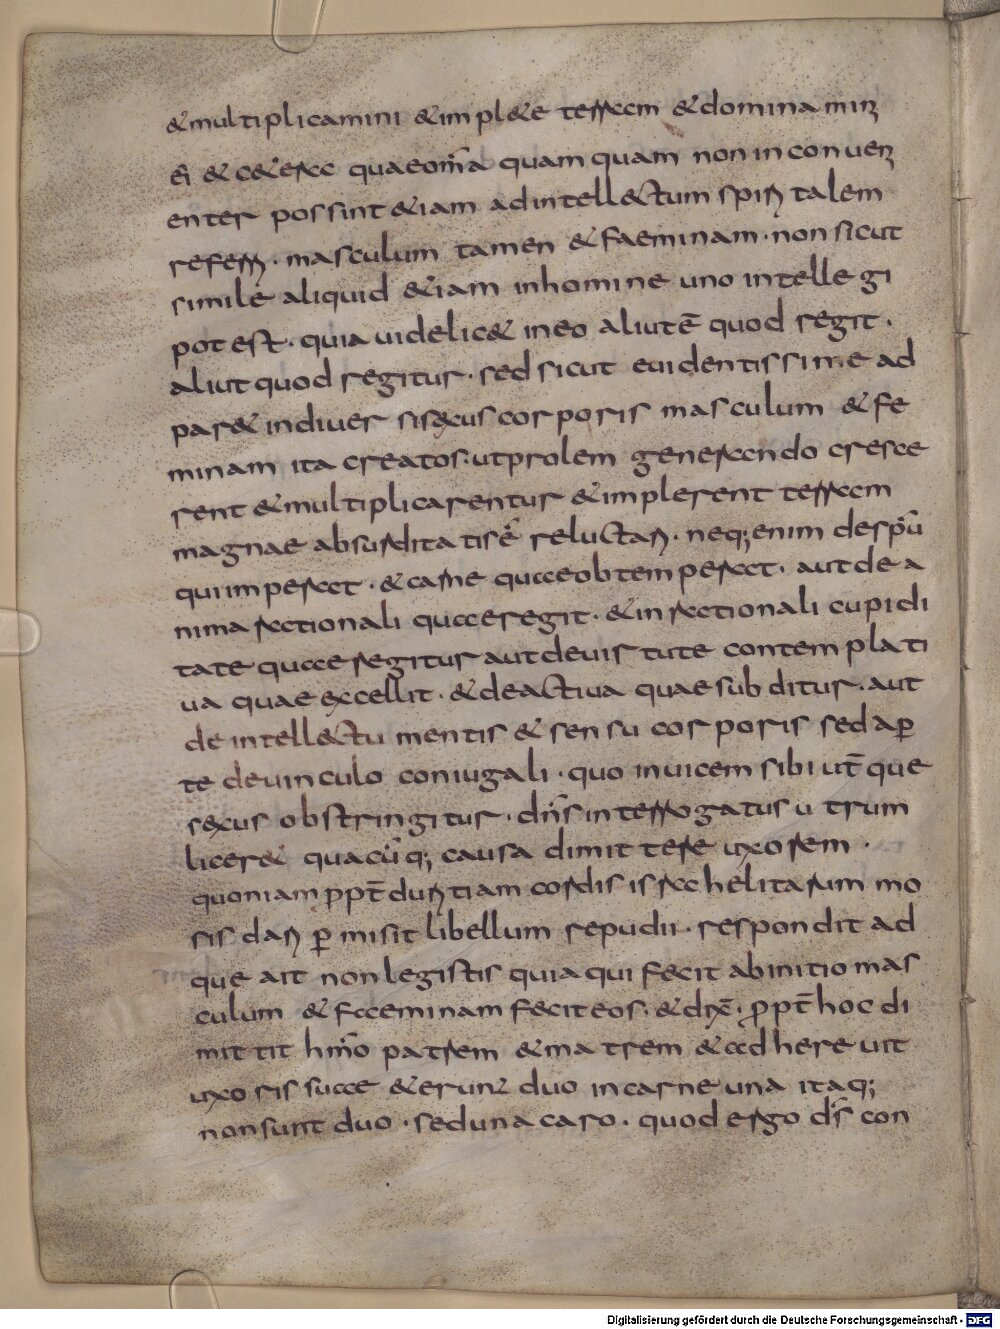 &multiplicamini &impl&e terram &dominamini
ei & c&era quaeom̄a quam quam non in conueni
enter possint &iam ad intellectum spiri talem
referri · masculum tamen & faeminam · non sicut
simile aliquid &iam inhomine uno intellegi
potest · quia uidelic& in eo aliutē quod regit ·
aliut quod regitur · sed sicut euidentissime ad
par& indiuer sisexus corporis masculum & fe
minam ita creatos · utprolem generando cresce
rent &multiplicarentur &implerent terram
magnae absurditatisē reluctari · neq; enim desp̄u
qui imperat · &carne quaeobtemperat · aut de a
nima rationali quaeregit · &inrationali cupidi
tate quae regitur aut deuirtute contemplati
ua quae excellit · &deactiua quae subditur · aut
de intellectu mentis & sensu corporis sed aꝑ
te deuinculo coniugali · quo inuicem sibi ut̄que
sexus obstringitur · dn̄s interrogatus utrum
licer& quacūq; causa dimittere uxorem ·
quoniam ꝓpt̄ duritiam cordis israhelitarum mo
sis dari ꝑmisit libellum repudii · respondit ad
que ait non legistis quia qui fecit abinitio mas
culum & faeminam feciteos · &dix̄ · ꝓpt̄ hoc di
mittit hm̄o patrem &matrem &adhereuit
uxoris suae &erunt duo incarne una itaq;
nonsunt duo · seduna caro · quod ergo ds̄ con
Digitalisierung gefördert durch die Deutsche Forschungsgemeinschaft - DFG